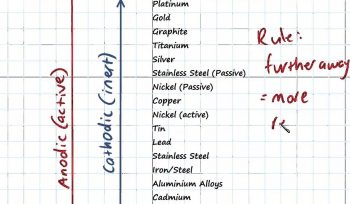 Platinum
Gold
Graphite
Titanium
Silver
Stainless Steel (Passive)
Nickel (Passive)
Copper
Nickel (active)
Tin
Lead
Stainless Steel
Iron/Steel
Aluminium Alloys
Cadmium
Anodic (active)
Cathodic (inert)
Rule:
further away
= more